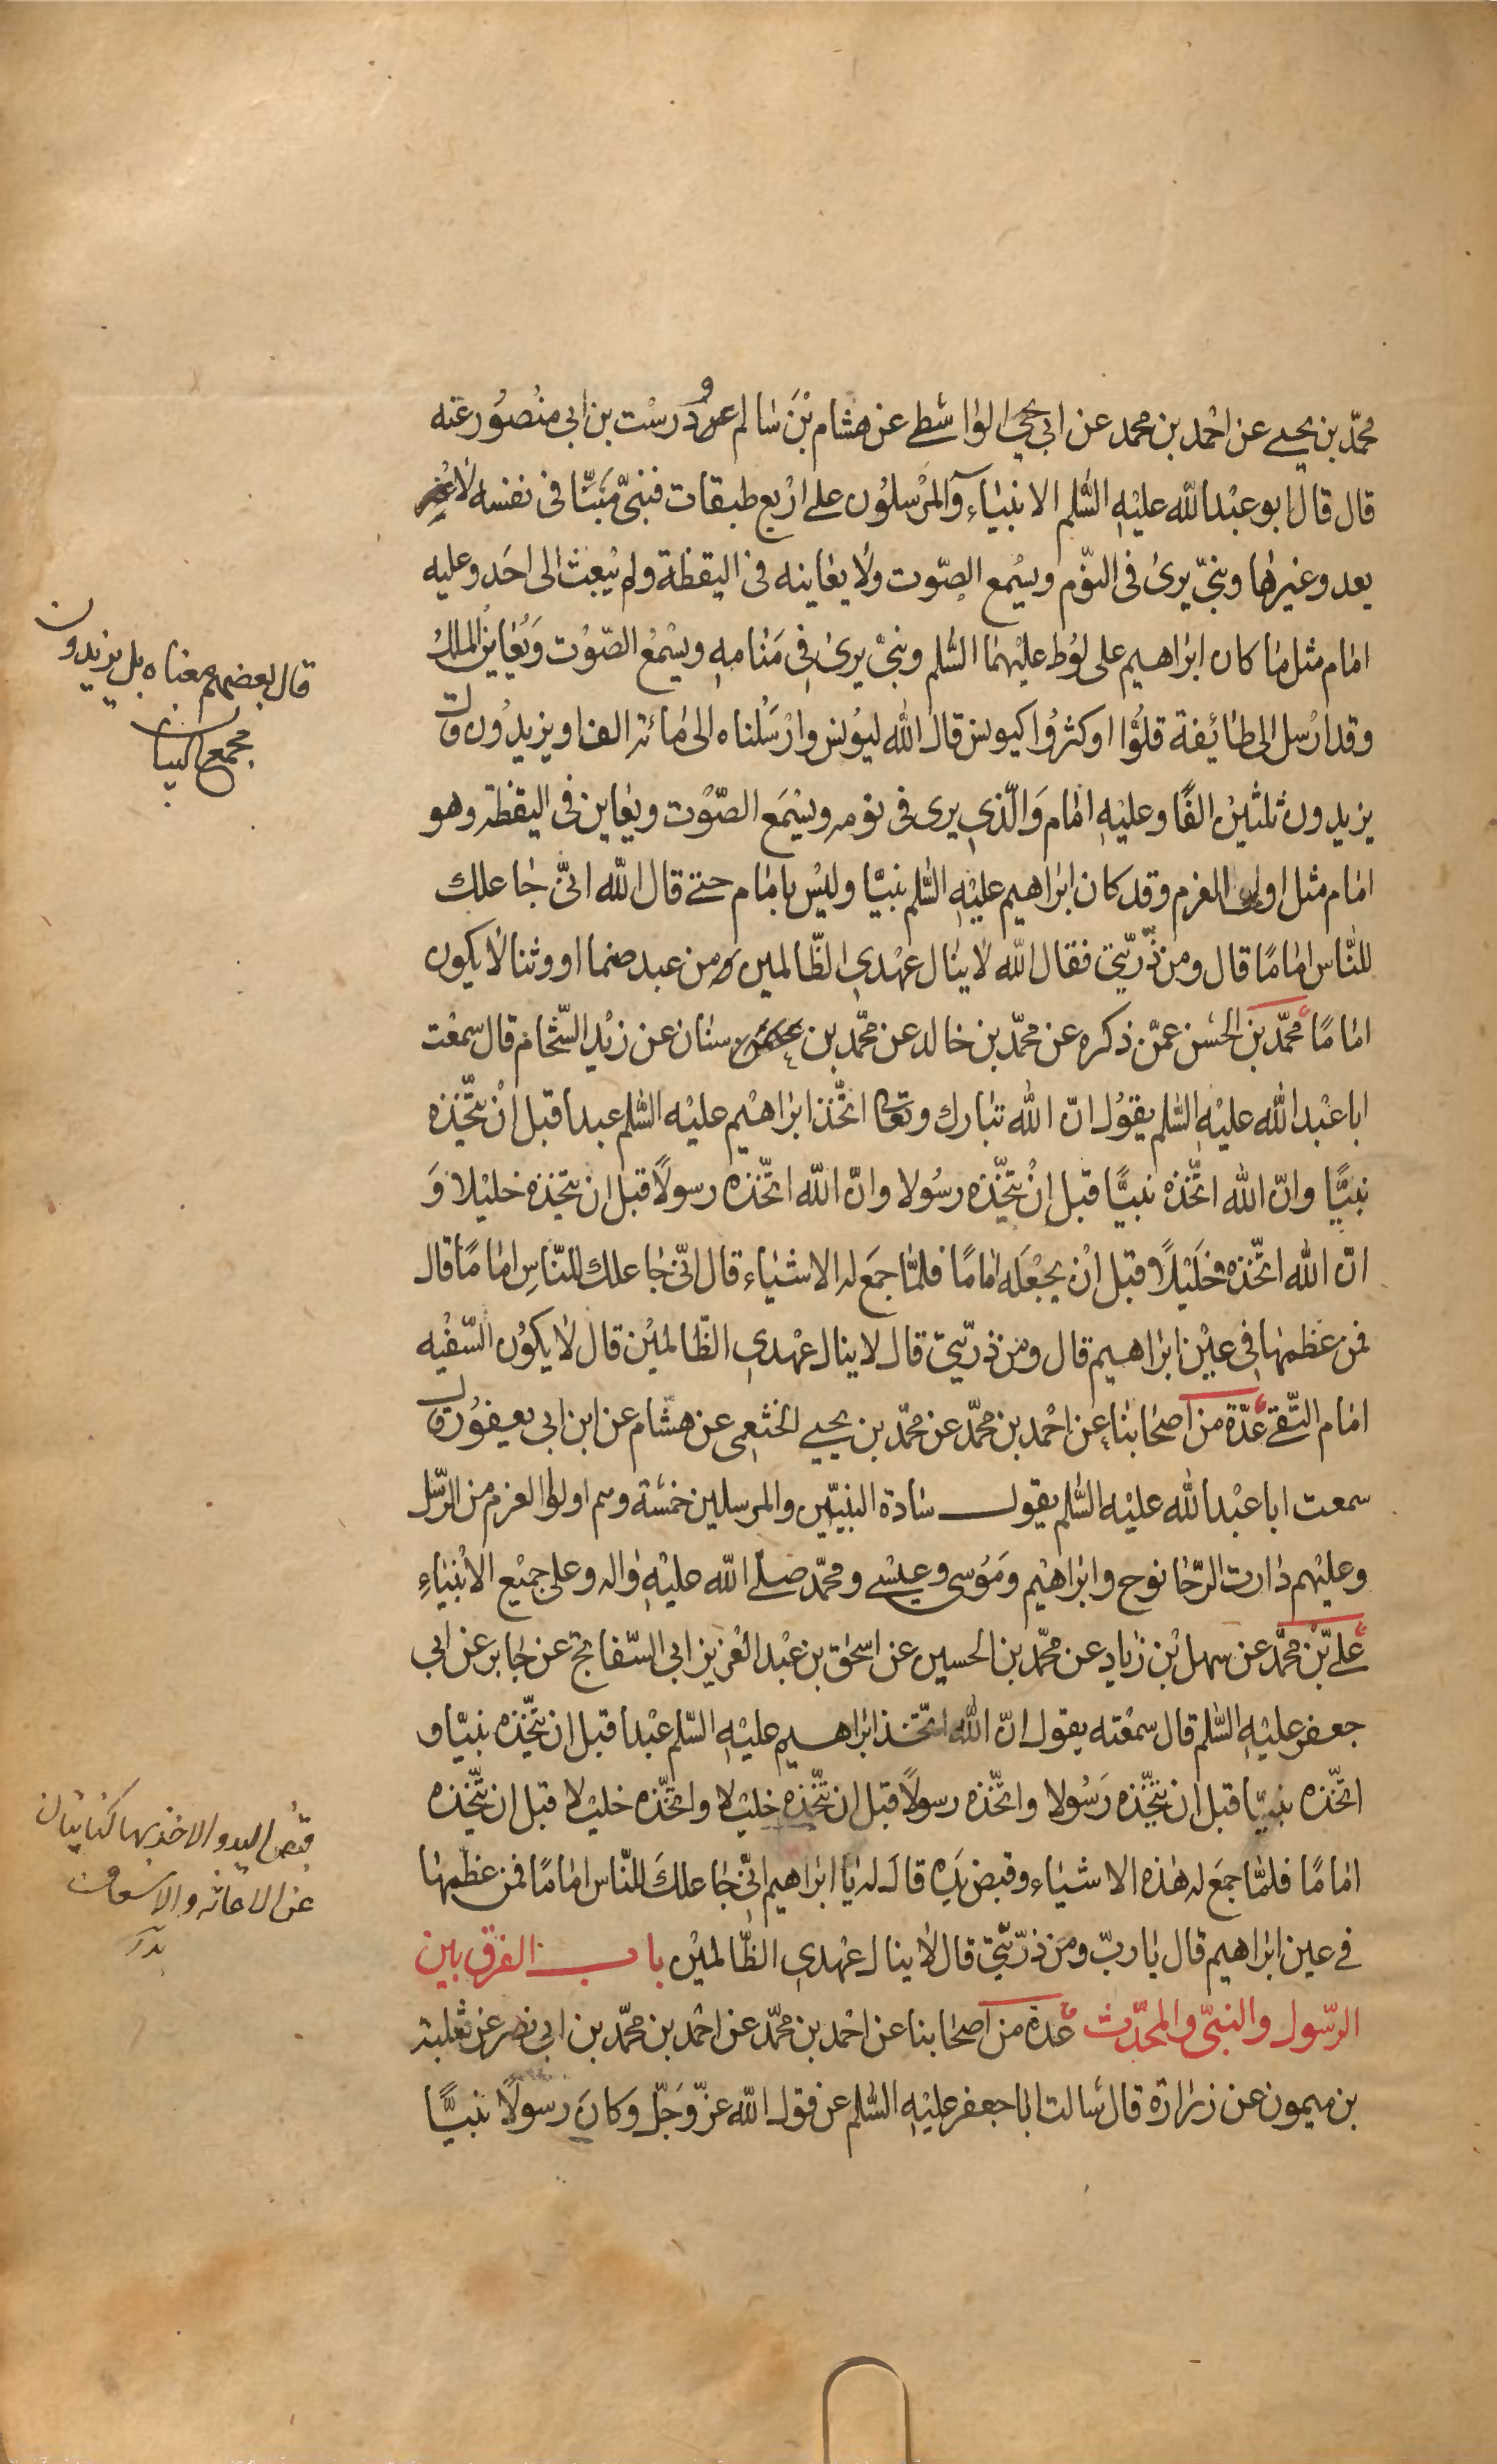 محمّد بن يحيى عن احمد بن محمد عن ابي يحيى الواسطي عن هشام بن سالم و درست بن ابي منصور عنه
قال قال ابو عبد الله عليه السّلم الانبياء والمرسلون على اربع طبقات فنبيّ منبّأ في نفسه لا
يعدو غيرها ونبيّ يرى في النّوم ويسمع الصّوت ولا يعاينه في اليقظة ولم يبعث الى احد وعليه
امام مثل ما كان ابراهيم على لوط عليهما السّلم ونبيّ يرى في منامه ويسمع الصّوت ويعاين الملك
وقد ارسل الى طائفة قلّوا او كثروا كيونس قال الله ليونس وارسلناه الى مائة الف او يزيدون قال
يزيدون ثلثين الفًا وعليه امام والّذي يرى في نومه ويسمع الصّوت ويعاين في اليقظة وهو
امام مثل اولي العزم وقد كان ابراهيم عليه السّلم نبيّا وليس بامام حتى قال الله انّي جاعلك
للنّاس امامًا قال ومن ذرّيّتي فقال الله لا ينال عهدي الظّالمين ومن عبد صنما او وثنا لا يكون
امامًا محمّد بن الحسن عمّن ذكره عن محمّد بن خالد عن محمّد بن سنان عن زيد الشّحام قال سمعت
ابا عبد الله عليه السّلم يقول انّ الله تبارك وتعالى اتّخذ ابراهيم عليه السّلم عبدا قبل ان يتّخذه
نبيًّا وانّ الله اتّخذه نبيًّا قبل ان يتّخذه رسولا وانّ الله اتّخذه رسولًا قبل ان يتخذه خليلا وَ
انّ الله اتّخذه خليلًا قبل ان يجعله امامًا فلمّا جمع له الاشياء قال انّي جاعلك للنّاس امامًا قال
فمن عظمها في عين ابراهيم قال ومن ذرّيّتي قال لا ينال عهدي الظّالمين قال لا يكون السّفيه
امام التّقي عدّة من اصحابنا عن احمد بن محمّد عن محمّد بن يحيى الخثعمي عن هشام عن ابن ابي يعفور قال
سمعت ابا عبد الله عليه السّلم يقول سادة النبيّين والمرسلين خمسة وهم اولوا العزم من الرّسل
وعليهم دارت الرّحا نوح وابراهيم وموسى وعيسى ومحمّد صلّى الله عليه واله وعلى جميع الانبياءِ
علي بن محمّد عن سهل بن زياد عن محمّد بن الحسين عن اسحق بن عبد العزيز ابي السّفاتج عن جابر عن ابي
جعفر عليه السّلم قال سمعته يقول انّ الله اتّخذ ابراهيم عليه السّلم عبدا قبل ان يتّخذه نبيّا و
اتّخذه نبيّا قبل ان يتّخذه رسولا واتّخذه رسولًا قبل ان يتّخذه خليلا واتّخذه خليلا قبل ان يتّخذه
امامًا فلمّا جمع له هذه الاشياء وقبض يده قال له يا ابراهيم انّي جاعلك للنّاس امامًا فمن عظمها
في عين ابراهيم قال يا ربّ ومن ذرّيّتي قال لا ينال عهدي الظّالمين باب الفرق بين
الرّسول والنبيّ والمحدّث عدة من اصحابنا عن احمد بن محمّد عن احمد بن محمّد بن ابي نصر عن ثعلبة
بن ميمون عن زرارة قال سالت ابا جعفر عليه السّلم عن قول الله عزّ وجلّ وكان رسولًا نبيًّا
قال بعضهم معناه بل يزيدون
مجمع البيان
قبض اليد والاخذ بها كنايتان
عن الاعانة والاسعاف